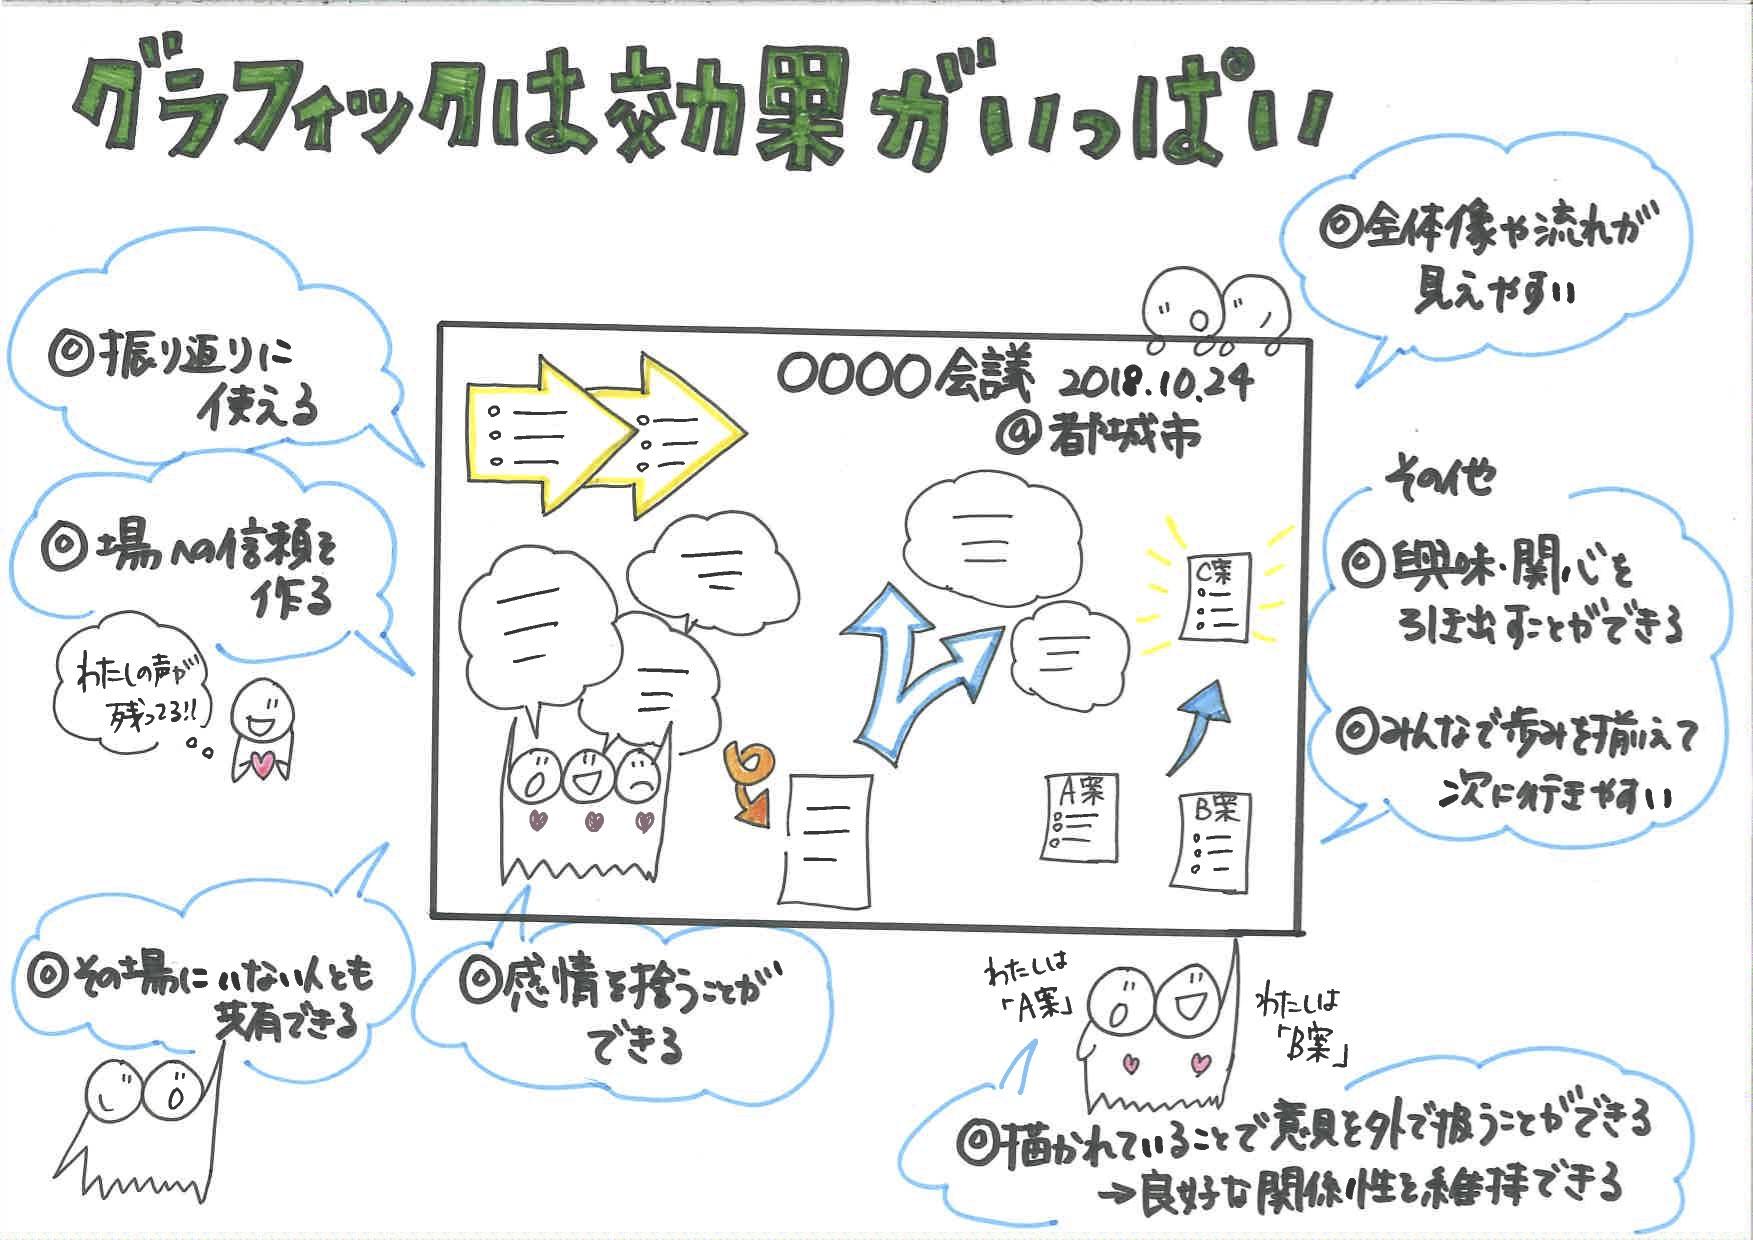 グラフィックは効果がいっぱい
◎全体像や流れが
見えやすい
◎振り返りに
使える
〇〇〇〇会議 2018.10.24
@都城市
その他
◎場への信頼を
作る
◎興味・関心を
引き出すことができる
C案
わたしの声が
残ってる!!
◎みんなで歩みを揃えて
次に行きやすい
A案
B案
◎その場にいない人とも
共有できる
◎感情を拾うことが
できる
わたしは
「A案」
わたしは
「B案」
◎描かれていることで意見を外で扱うことができる
→良好な関係性を維持できる